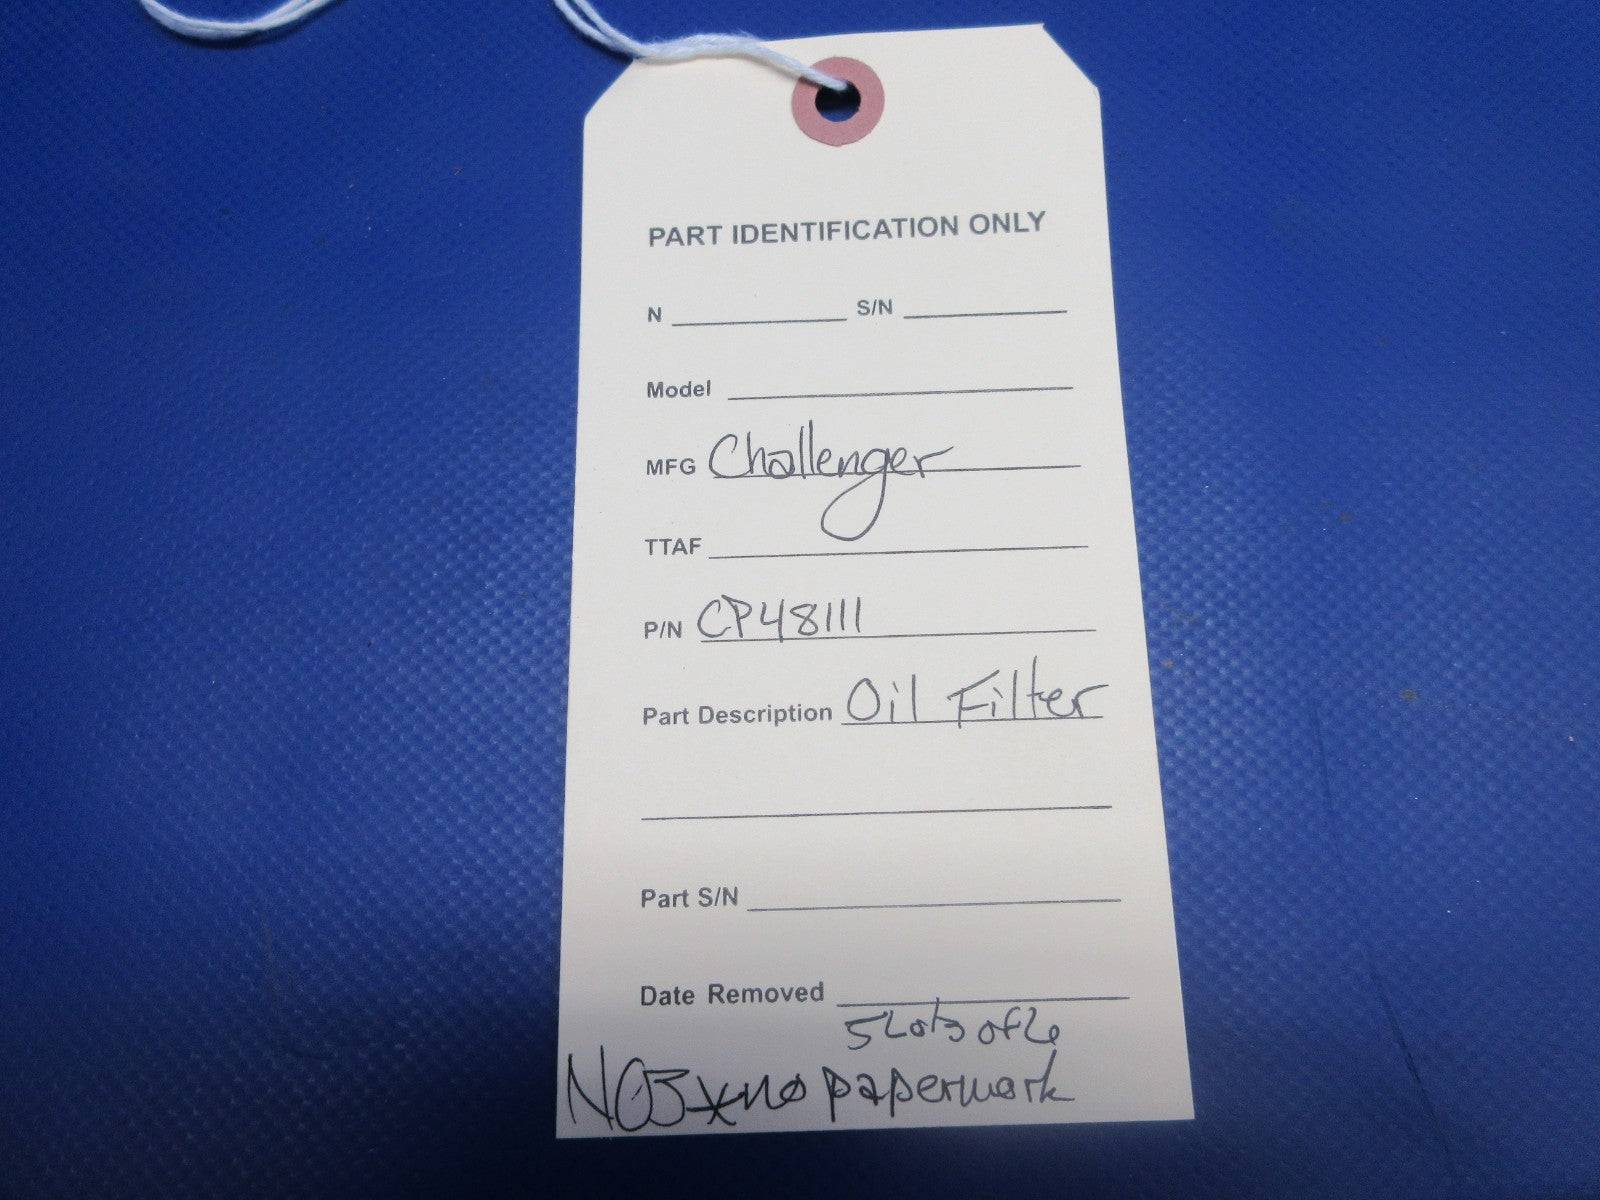 PART IDENTIFICATION ONLY
N S/N
Model
MFG Challenger
TTAF
P/N CP48111
Part Description Oil Filter
Part S/N
Date Removed
5 Lots of 6
NOS * no paperwork